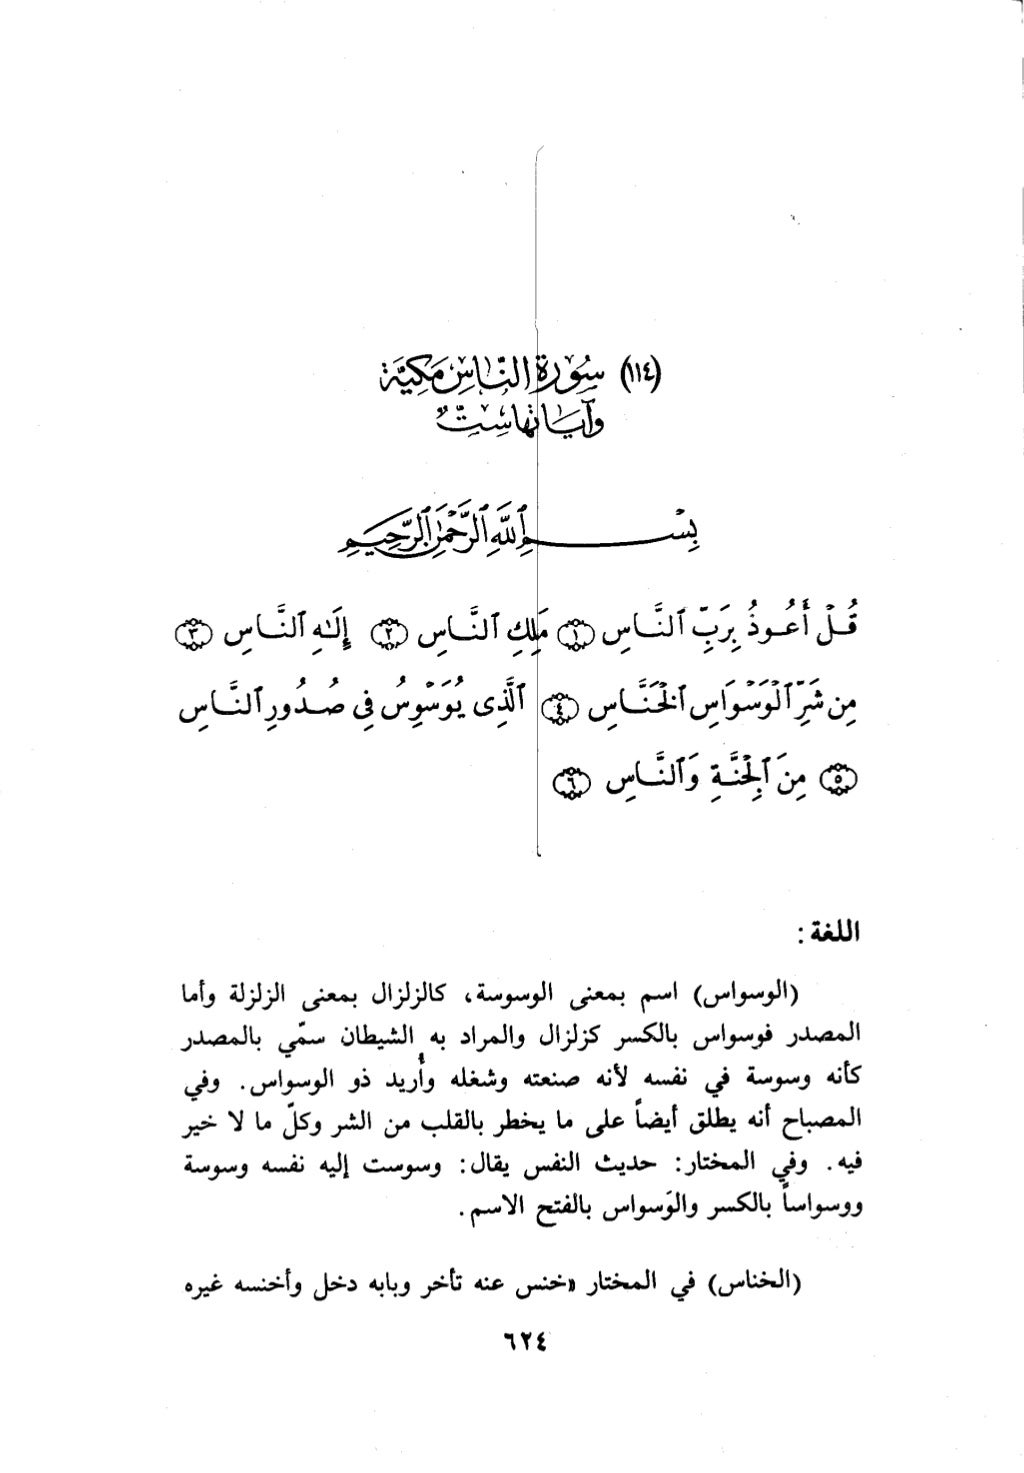 (١١٤) سُورَةُ النَّاسِ مَكِيَّة
وَآيَاتُهَا سِتٌّ
بِسْمِ ٱللَّهِ ٱلرَّحْمَٰنِ ٱلرَّحِيمِ
قُلْ أَعُوذُ بِرَبِّ ٱلنَّاسِ ١ مَلِكِ ٱلنَّاسِ ٢ إِلَٰهِ ٱلنَّاسِ ٣
مِن شَرِّ ٱلْوَسْوَاسِ ٱلْخَنَّاسِ ٤ ٱلَّذِى يُوَسْوِسُ فِى صُدُورِ ٱلنَّاسِ
٥ مِنَ ٱلْجِنَّةِ وَٱلنَّاسِ ٦
اللغة :
(الوسواس) اسم بمعنى الوسوسة، كالزلزال بمعنى الزلزلة وأما
المصدر فوسواس بالكسر كزلزال والمراد به الشيطان سمّي بالمصدر
كأنه وسوسة في نفسه لأنه صنعته وشغله وأُريد ذو الوسواس. وفي
المصباح أنه يطلق أيضاً على ما يخطر بالقلب من الشر وكلّ ما لا خير
فيه. وفي المختار: حديث النفس يقال: وسوست إليه نفسه وسوسة
ووسواساً بالكسر والوَسواس بالفتح الاسم.
(الخناس) في المختار «خنس عنه تأخر وبابه دخل وأخنسه غيره
٦٢٤